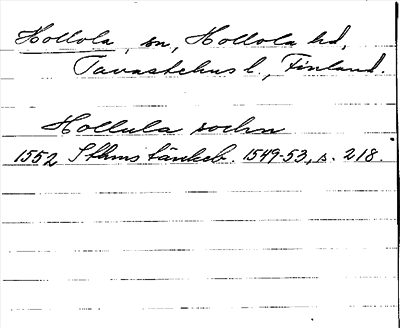 Hollola, sn, Hollola hd,
Tavastehus l., Finland.
Hollula sochn
1552 Sthms tänkeb. 1549-53, s. 218.